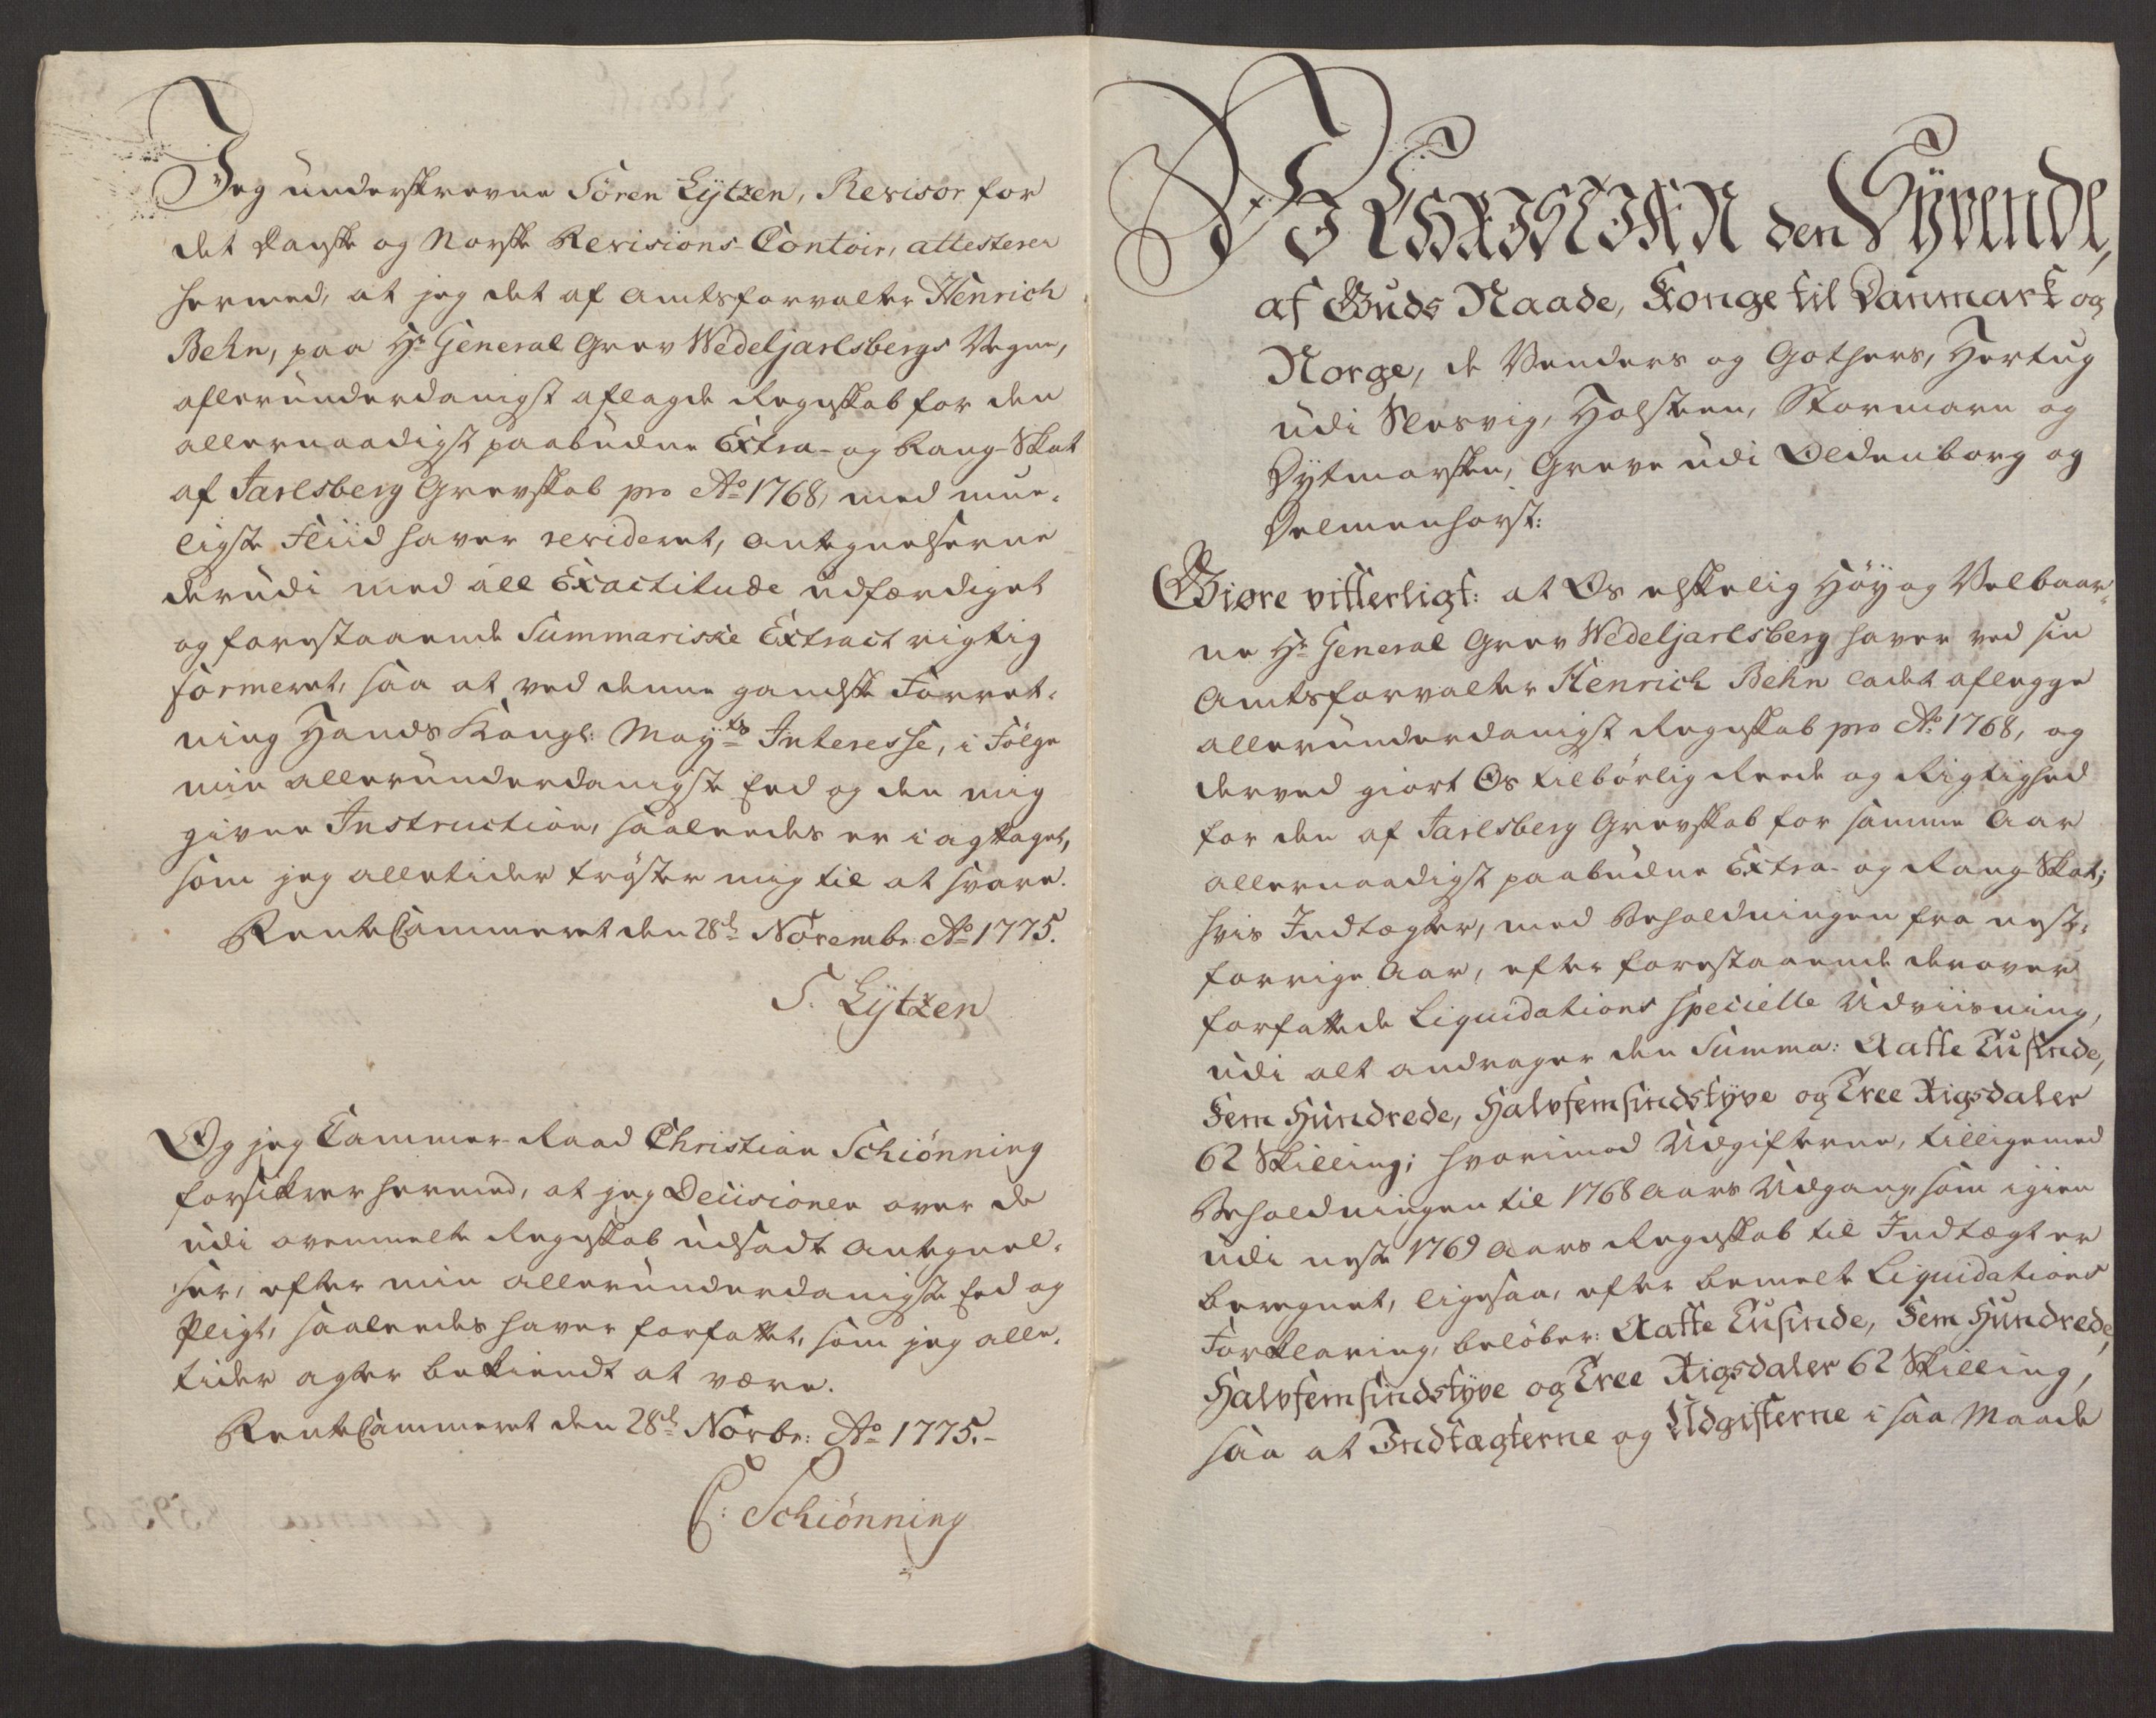 Jeg underskrevne Sören Lÿtzen, Revisor for
det Danske og Norske Revisions-Contoir, attesterer
hermed, at jeg det af Amtsforvalter Henrich
Behn, paa Hr General Grev Wedeljarlsbergs Vegne,
allerunderdanigst aflagde Regnskab for den
allernaadigst paabudne Extra- og Rang-Skat
af Jarlsberg Grevskab pro Ao 1768, med mue-
ligste Fliid haver revideret, Antegnelserne
derudi med all Exactitude udfærdiget
og forestaaende Summariske Extract rigtig
formeret, saa at ved denne gandske Forret-
ning Hands Kongl: Mayts Interesse, i Fölge
min allerunderdanigste Eed og den mig
givne Instruction, saaledes er iagttaget,
som jeg alletider tröster mig til at svare.
RenteCammeret den 28d Novembr: Ao 1775.
S. Lÿtzen
Og jeg Cammer-Raad Christian Schiönning
forsikrer hermed, at jeg Decisionen over de
udi ovenmelte Regnskab udsadte Antegnel-
ser, efter min allerunderdanigste Eed og
Pligt, saaledes haver forfattet, som jeg alle-
tider agter bekiendt at være.
RenteCammeret den 28d Novbr: Ao 1775.-
C: Schiönning
Wi CHRISTIAN den Syvende,
af Guds Naade, Konge til Danmark og
Norge, de Venders og Gothers, Hertug
udi Slesvig, Holsteen, Stormarn og
Dytmarsken, Greve udi Oldenborg og
Delmenhorst:
Giøre vitterligt: at Os elskelig Höy og Velbaar-
ne Hr General Grev Wedeljarlsberg haver ved sin
Amtsforvalter Henrich Behn ladet aflegge
allerunderdanigst Regnskab pro Ao 1768, og
derved giort Os tilbörlig Reede og Rigtighed
for den af Jarlsberg Grevskab for samme Aar
allernaadigst paabudne Extra- og Rang-Skat;
hvis Indtægter, med Beholdningen fra nest-
forrige Aar, efter forestaaende derover
forfattede Liquidations specielle Udviisning,
udi alt andrager den Summa: Aatte Tusinde,
Fem Hundrede, Halvfemsindstyve og Tree Rigsdaler
62 Skilling; hvorimod Udgifterne, tilligemed
Beholdningen til 1768 Aars Udgang, som igien
udi neste 1769 Aars Regnskab til Indtægt er
beregnet, ligesaa, efter bemelte Liquidations
Forklaring, belöber: Aatte Tusinde, Fem Hundrede,
Halvfemsindstyve og Tree Rigsdaler 62 Skilling,
saa at Indtægterne og Udgifterne i saa Maade